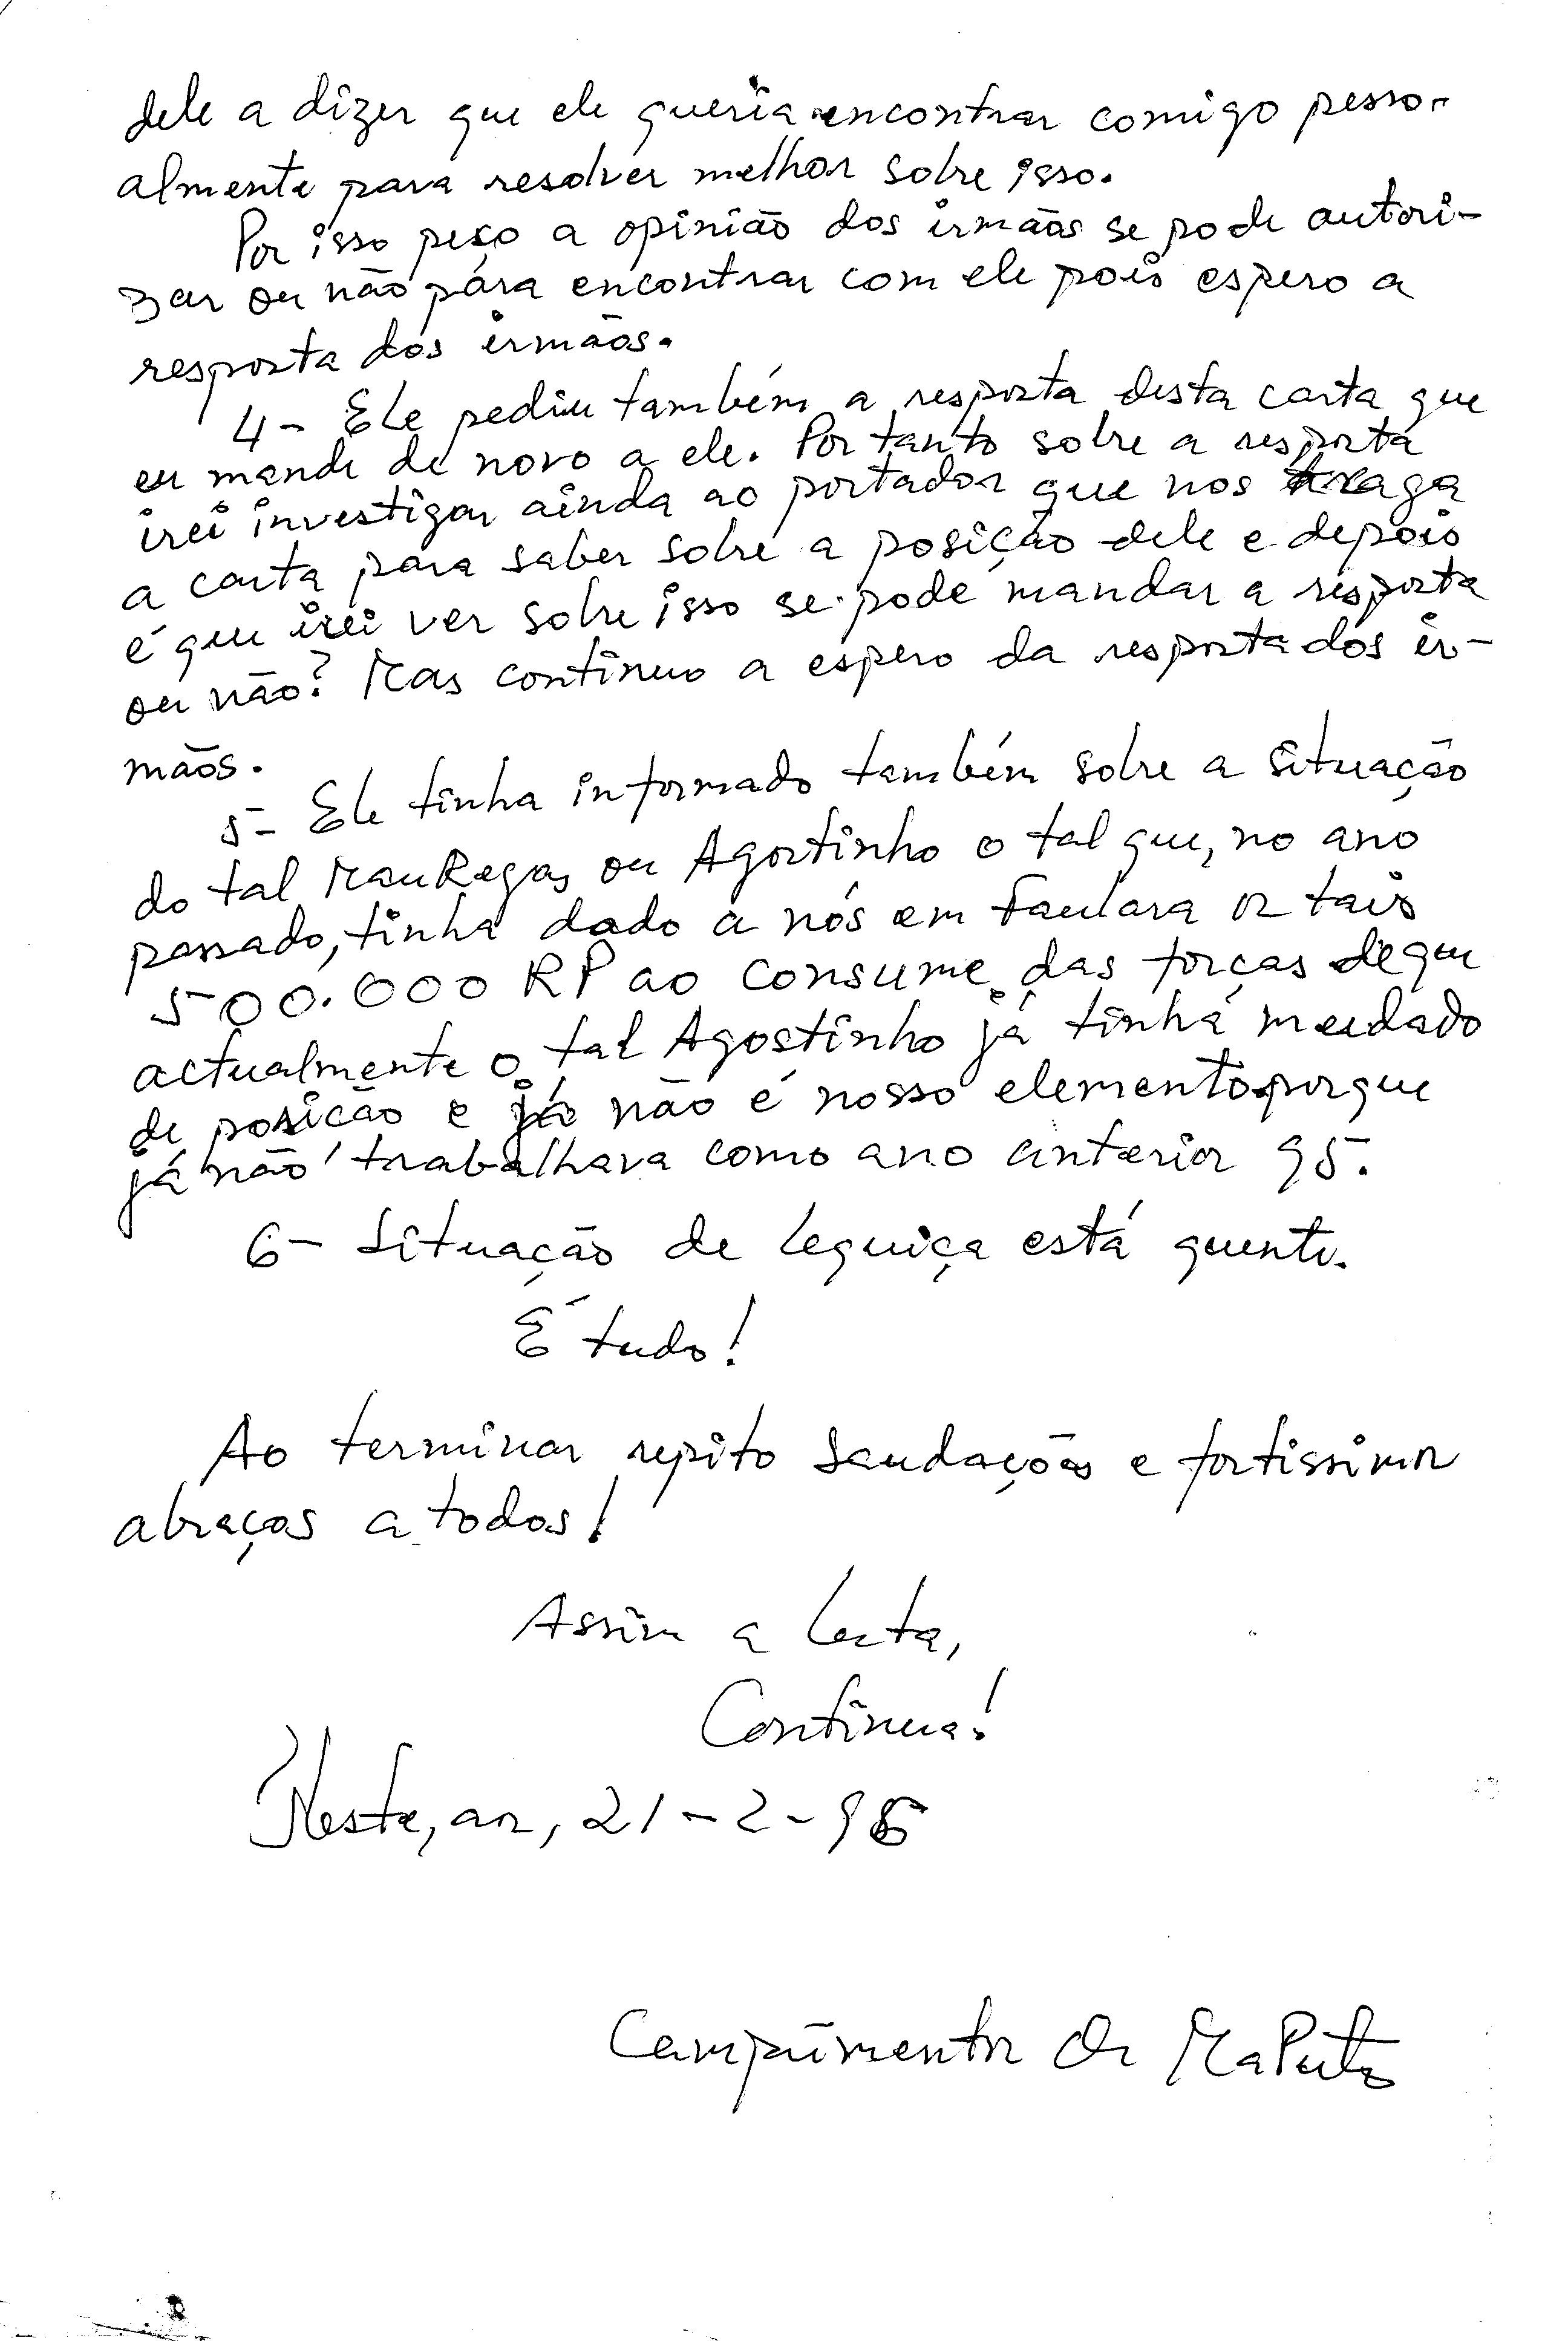 dele a dizer que ele queria encontrar comigo pesso-
almente para resolver melhor sobre isso.
Por isso peço a opinião dos irmãos se pode autori-
zar ou não para encontrar com ele pois espero a
resposta dos irmãos.
4- Ele pediu também a resposta desta carta que
eu mande de novo a ele. Portanto sobre a resposta
irei investigar ainda ao portador que nos traga
a carta para saber sobre a posição dele e depois
é que irei ver sobre isso se pode mandar a resposta
ou não? Mas continuo a espero da resposta dos ir-
mãos.
5- Ele tinha informado também sobre a situação
do tal MauRegas ou Agostinho o tal que, no ano
passado, tinha dado a nós em os tais
500.000 RP ao consume das forças de que
actualmente o tal Agostinho já tinha mudado
de posição e já não é nosso elemento porque
já não trabalhava como ano anterior 95.
6- Situação de Lequiça está quente.
É tudo!
Ao terminar repito saudações e fortissimos
abraços a todos!
Assim a luta,
Continua!
Neste, aos, 21-2-96
Cumprimentos de MaPuto